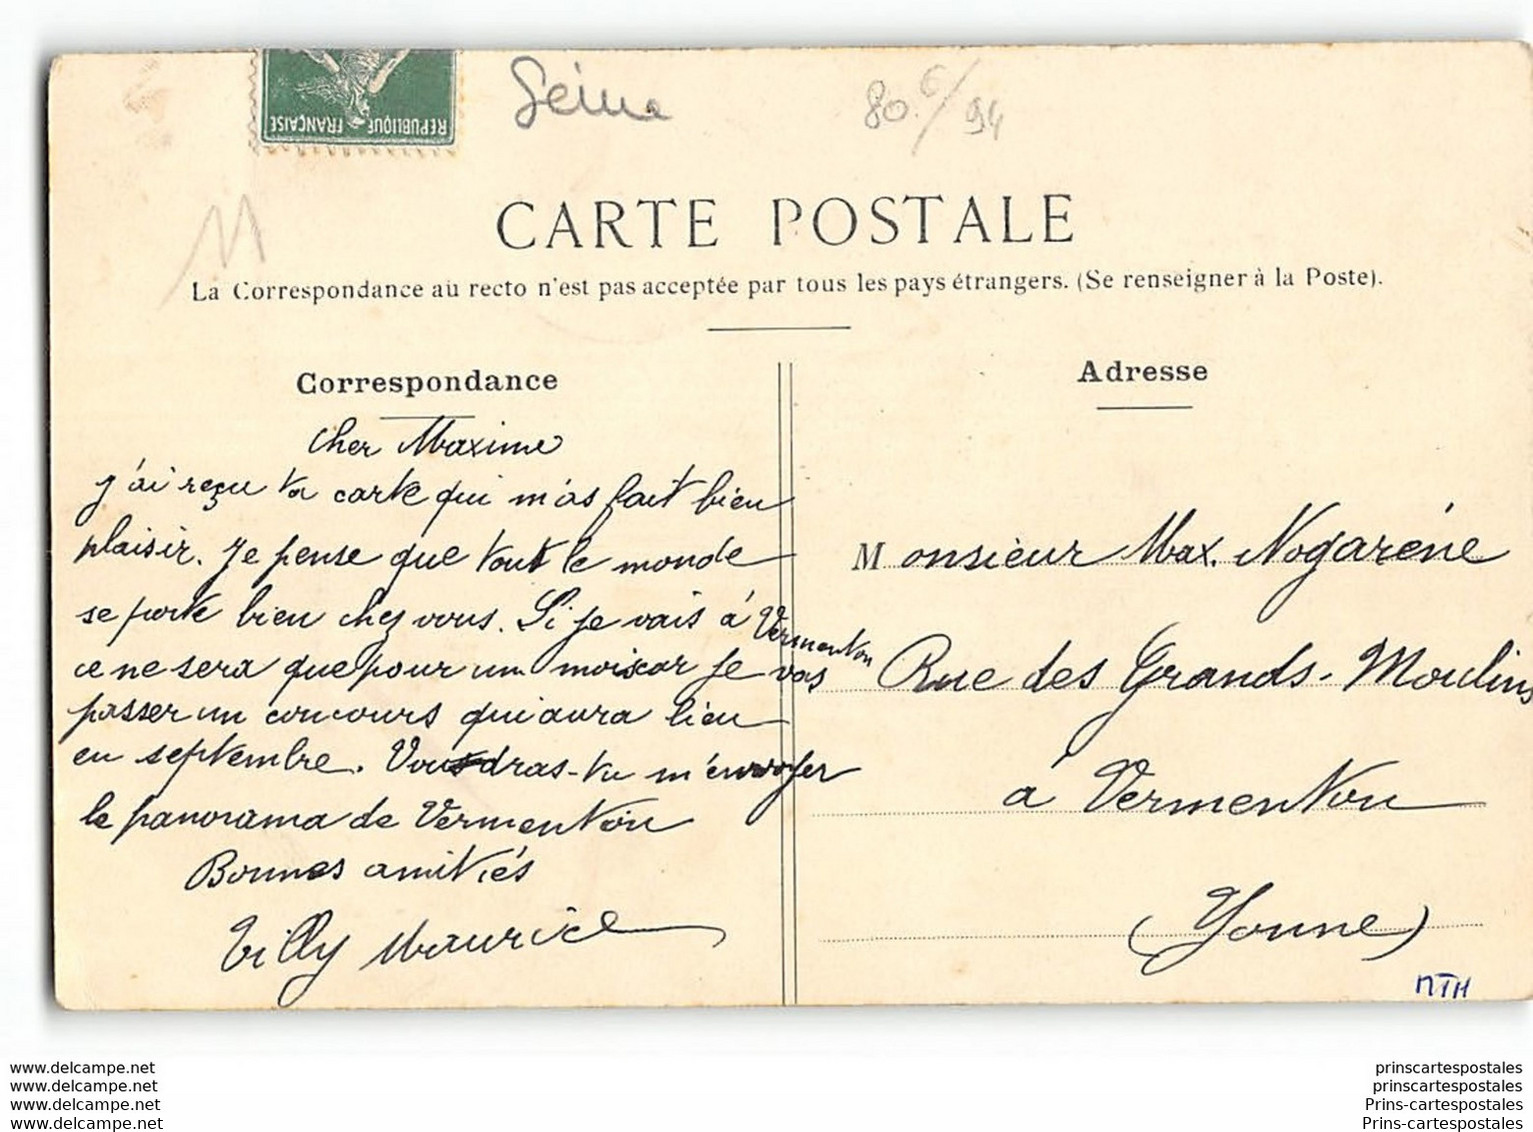 REPUBLIQUE FRANÇAISE
Seine
80
94
11
CARTE POSTALE
La Correspondance au recto n'est pas acceptée par tous les pays étrangers. (Se renseigner à la Poste).
Correspondance
Cher Maxime
j'ai reçu ta carte qui m'as fait bien
plaisir. Je pense que tout le monde
se porte bien chez vous. Si je vais à Vermenton
ce ne sera que pour un mois car je vas
passer un concours qui aura lieu
en septembre. Voudras-tu m'envoyer
le panorama de Vermenton
Bonnes amitiés
Tilly Maurice
Adresse
Monsieur Max. Nogaréne
Rue des Grands-Moulins
à Vermenton
(Yonne)
MTH
www.delcampe.net
www.delcampe.net
www.delcampe.net
www.delcampe.net
prinscartespostales
prinscartespostales
Prins-cartespostales
Prins-cartespostales